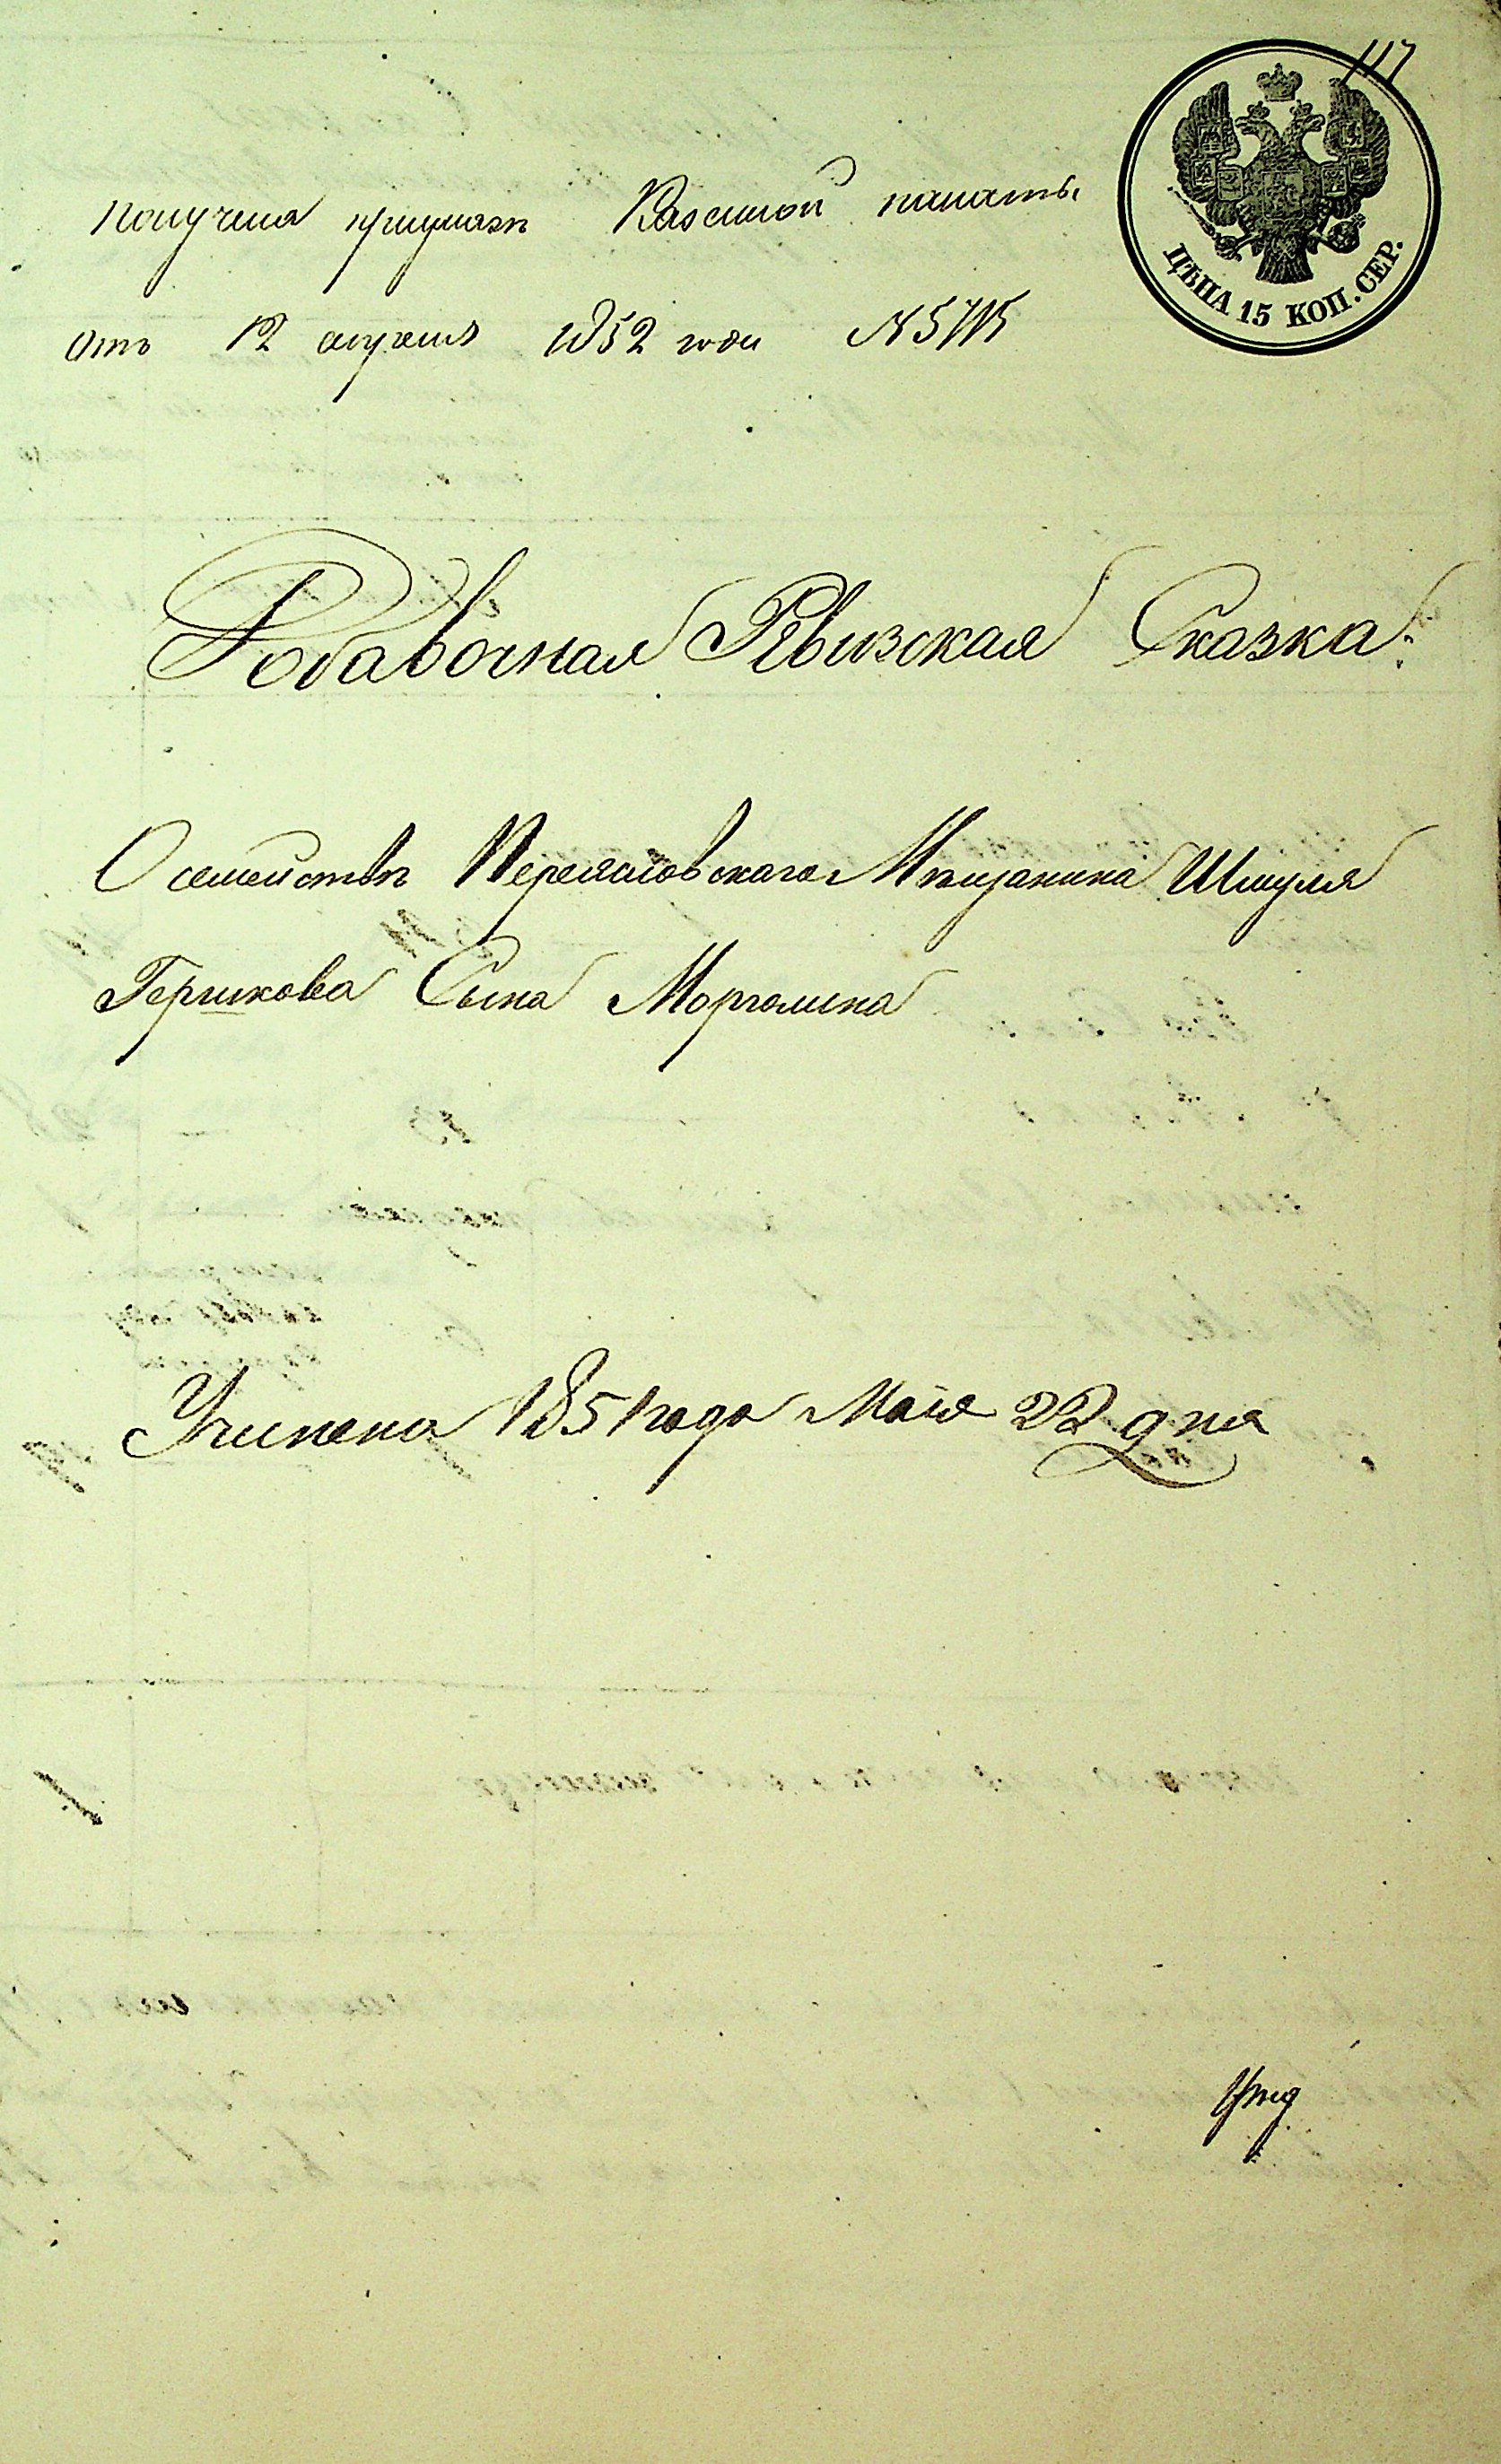 117
ЦѢНА 15 КОП. СЕР.
Казенной палаты
отъ 12 апреля 1852 года №
Добавочная Ревизская Сказка
О семействѣ Переясловскаго Мѣщанина Шмуля
Гершкова Сына Морголина
Учинена 1851 года Маія 22 дня